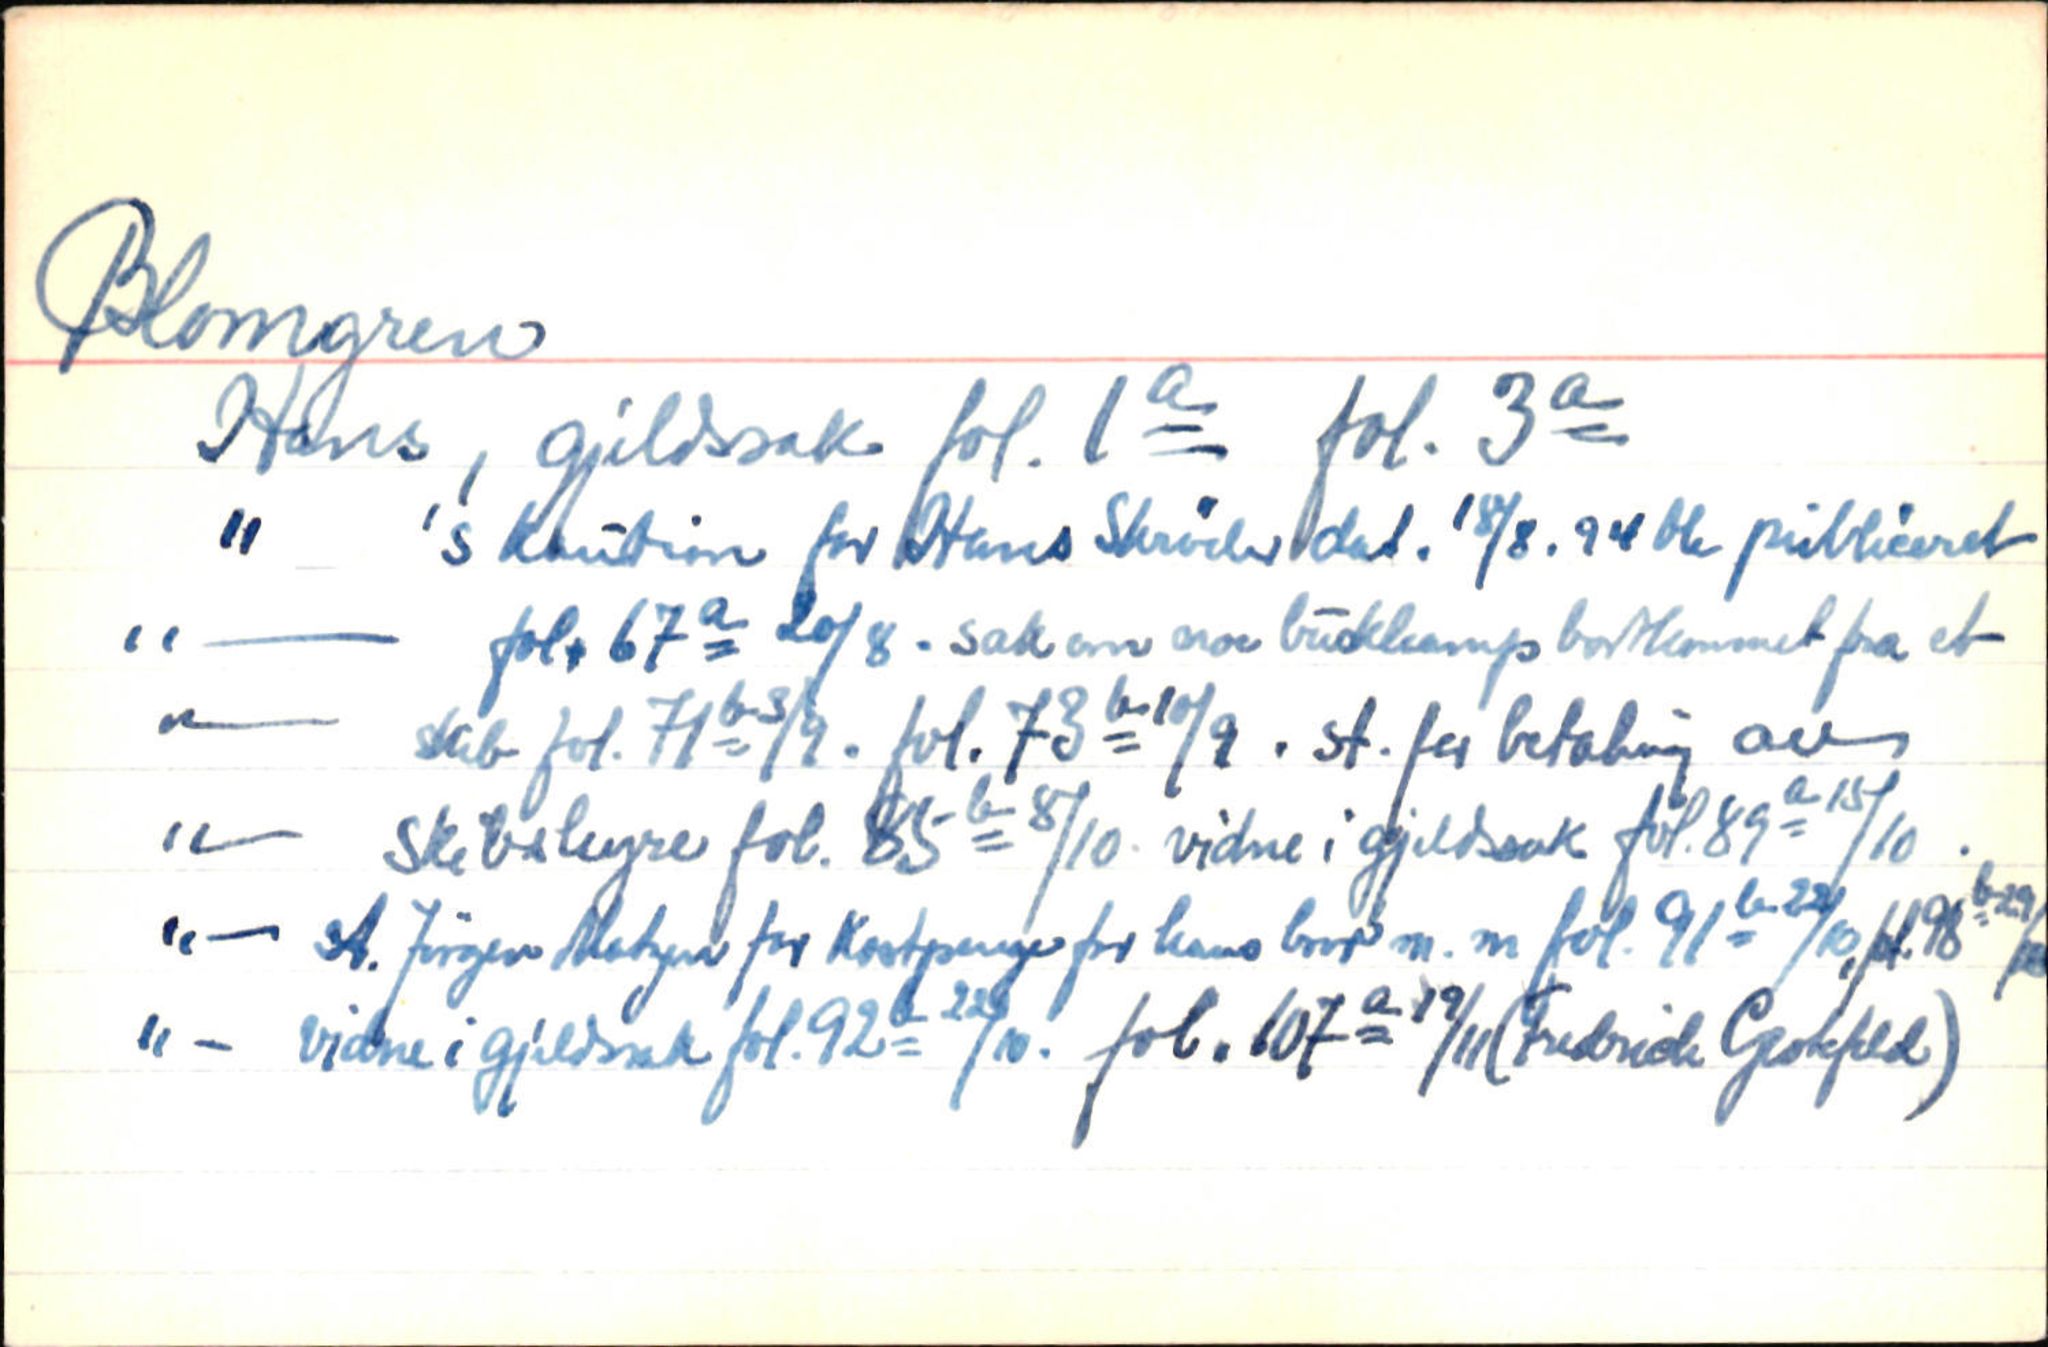 Blomgren
Hans, gjeldssak fol. 1a fol. 3a
" 's kaution for Hans Skröder dat. 18/8. 94 ble publiceret
" — fol. 67a 20/8. sak om noe bortkommet fra et
" — skib fol. 71b 3/9. fol. 73b 10/9. st. for betaling av
" — skibshyre fol. 85b 8/10. vidne i gjeldssak fol. 89a 15/10.
" — st. Jörgen for Kostpenge for hans bror m. m fol. 91b 22/10, fol. 98b 29/10
" – vidne i gjeldssak fol. 92b 22/10. fol. 107a 19/11 (Fredrich Grotfeld)